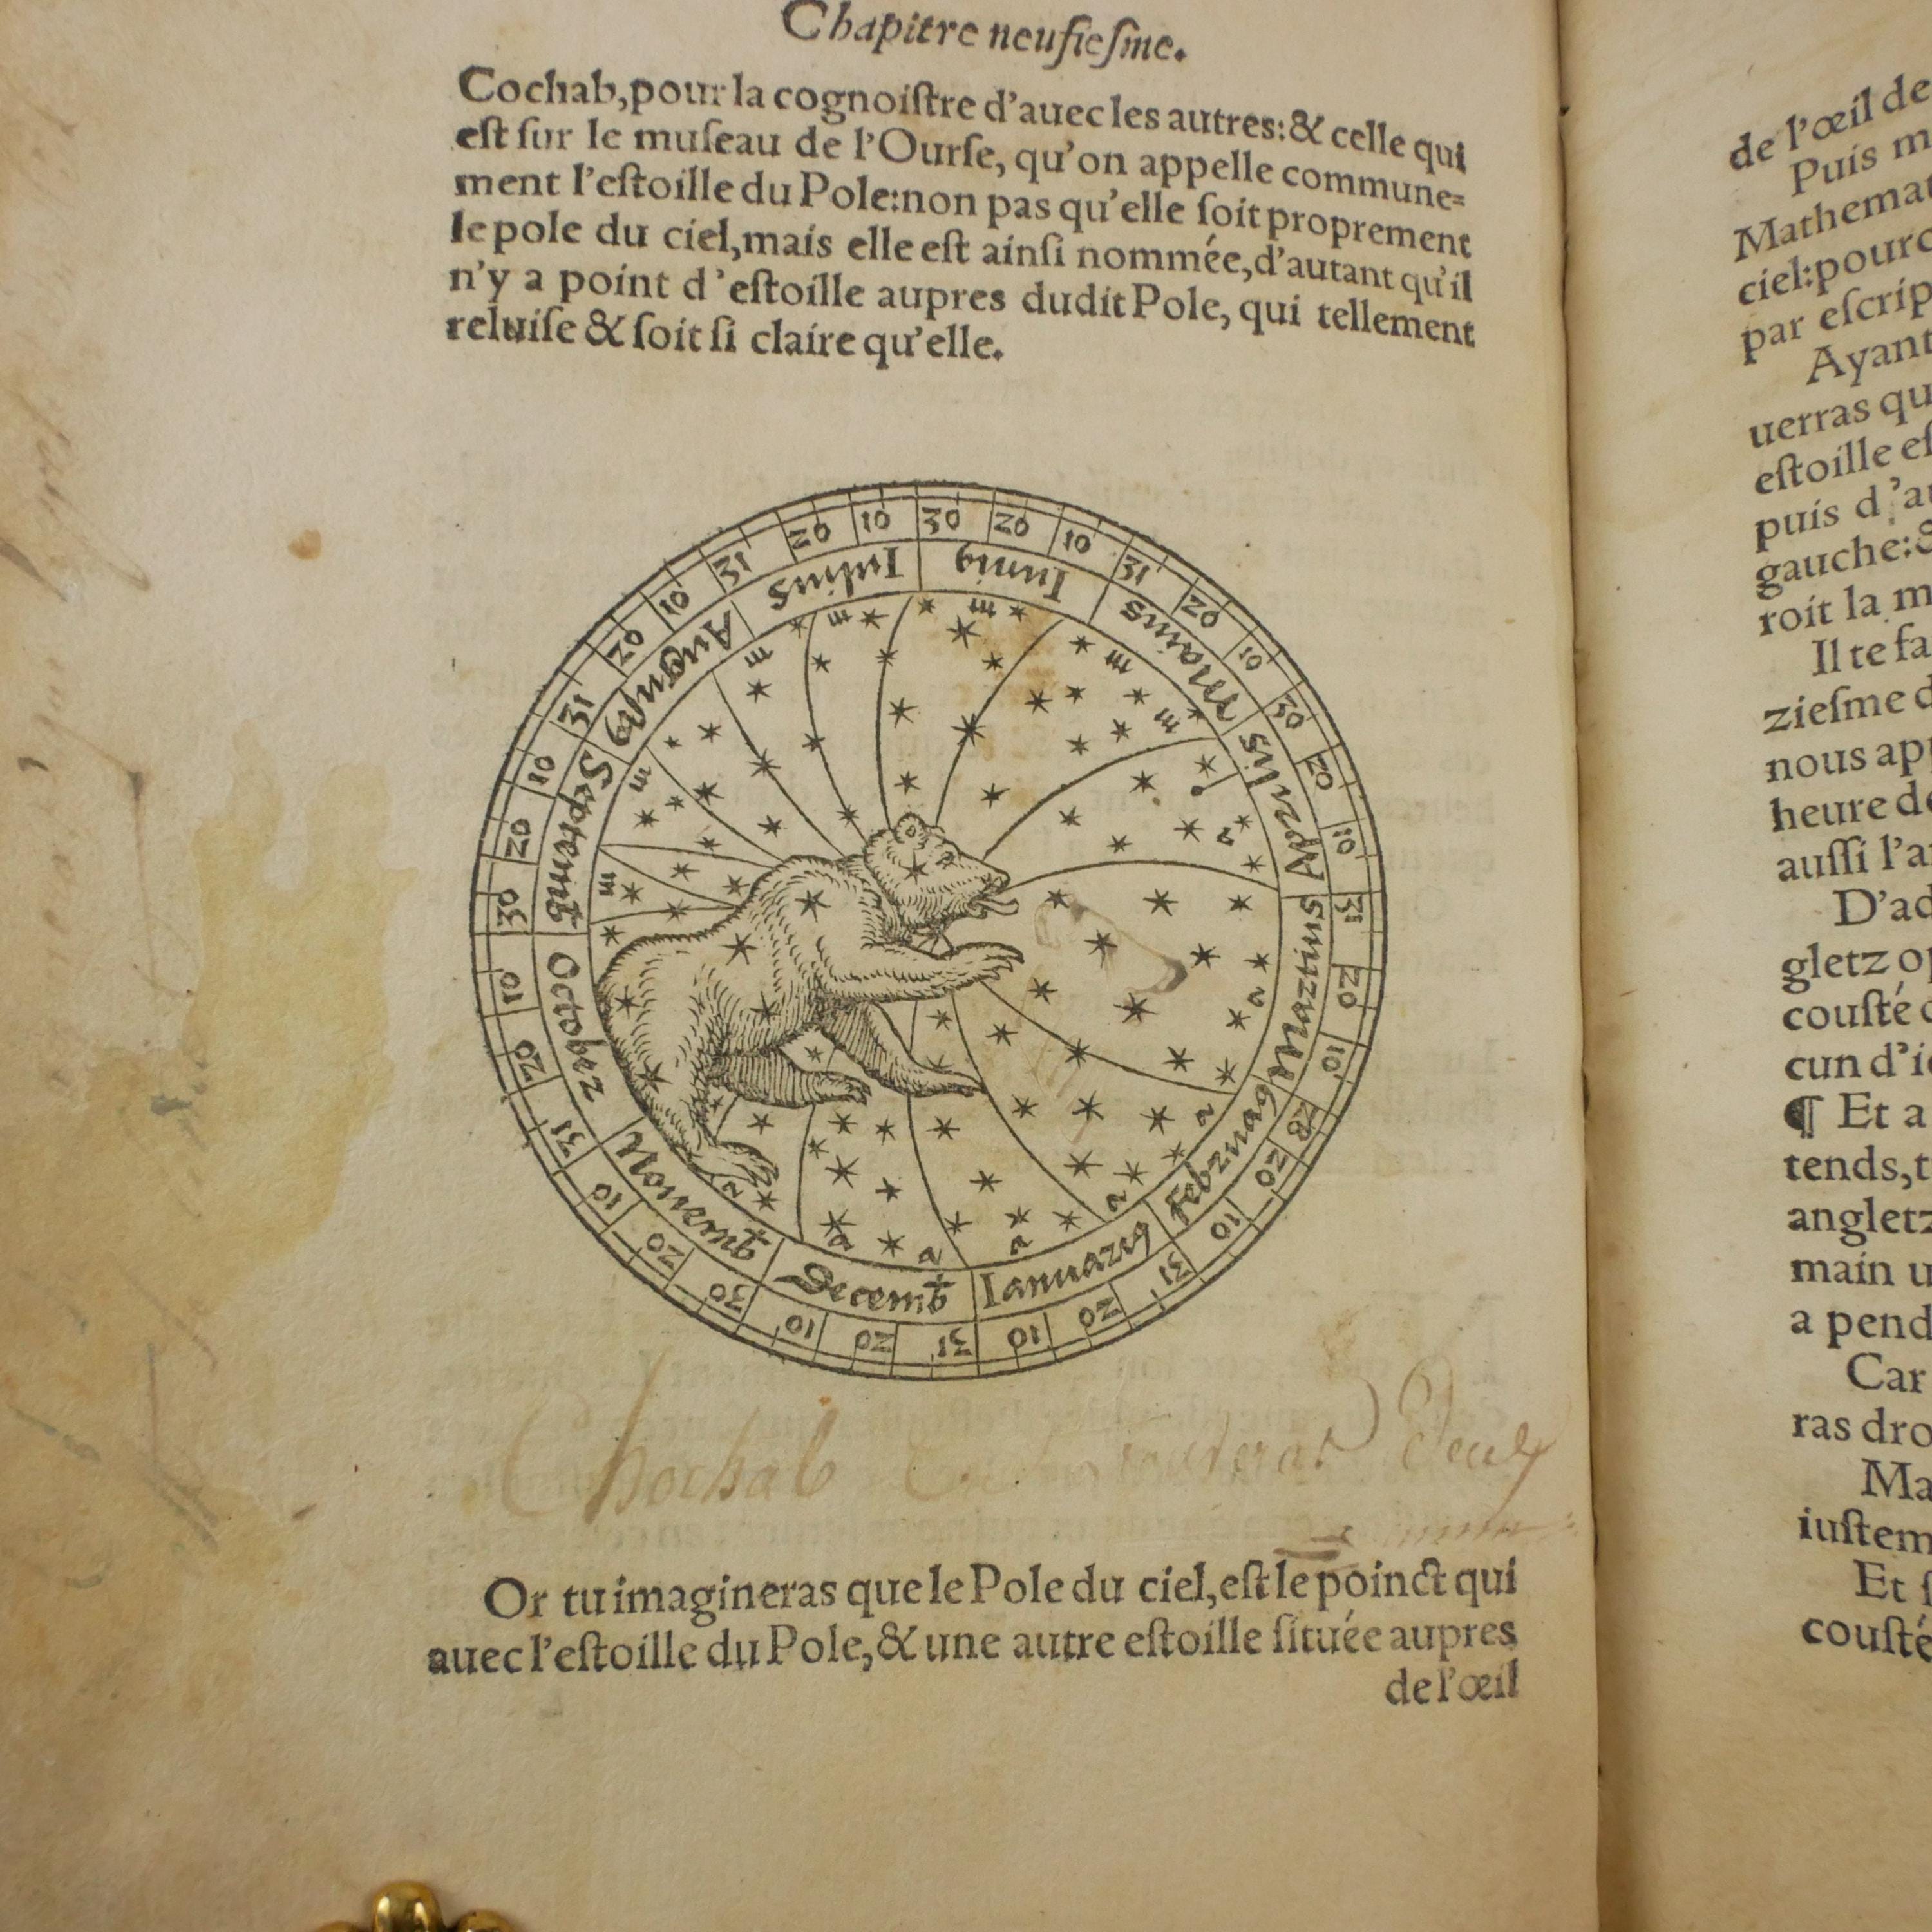 Chapitre neufiesme.
Cochab, pour la cognoiſtre d'auec les autres: & celle qui
eſt ſur le muſeau de l'Ourſe, qu'on appelle commune=
ment l'eſtoille du Pole: non pas qu'elle ſoit proprement
le pole du ciel, mais elle eſt ainſi nommée, d'autant qu'il
n'y a point d'eſtoille aupres dudit Pole, qui tellement
reluiſe & ſoit ſi claire qu'elle.
10 20 31 Ianuariꝰ
10 20 28 Februariꝰ
10 20 31 Martius
10 20 30 Aprilis
10 20 31 Maius
10 20 30 Iuniꝰ
10 20 31 Iulius
10 20 31 Auguſtꝰ
10 20 30 Septemb
10 20 31 October
10 20 30 Nouemb
10 20 31 Decemb
m m m m m m m
a a a a a a
Chochab
Or tu imagineras que le Pole du ciel, eſt le poinct qui
auec l'eſtoille du Pole, & une autre eſtoille ſituée aupres
de l'œil
de l'œil de
Puis
Mathemat
ciel: pourc
par eſcrip
Ayant
uerras qu
eſtoille eſ
puis d'au
gauche: &
roit la m
Il te fa
zieſme d
nous app
heure de
auſſi l'a
D'ad
gletz op
couſté d
cun d'ic
¶ Et a
tends, t
angletz
main u
a pend
Car
ras dro
Ma
iuſtem
Et ſ
couſté